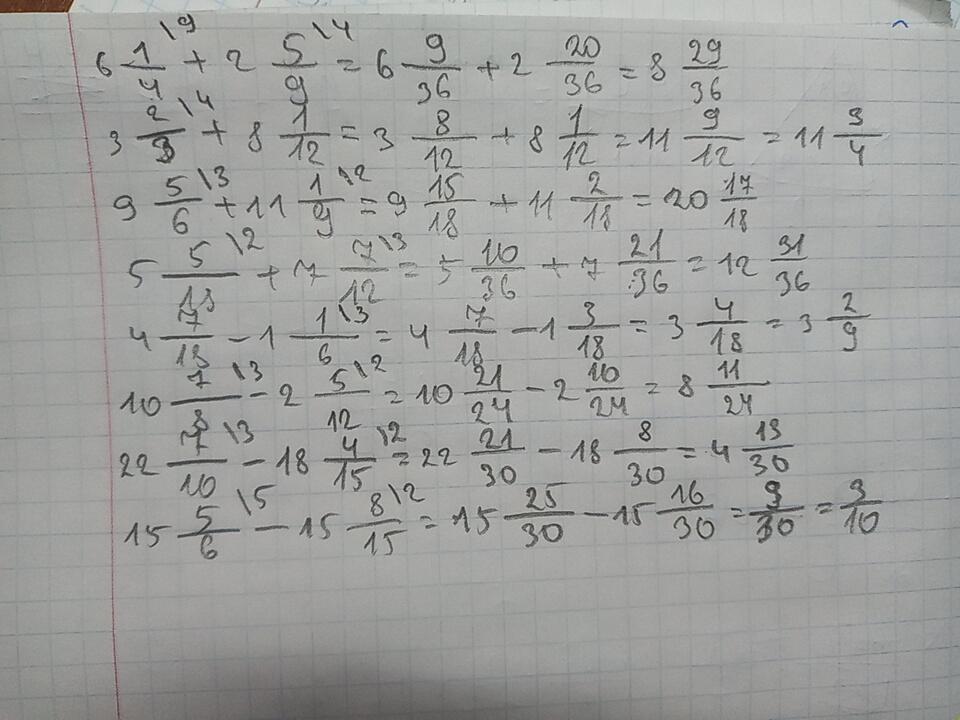 6 1/4 \9 + 2 5/9 \4 = 6 9/36 + 2 20/36 = 8 29/36
3 2/3 \4 + 8 1/12 = 3 8/12 + 8 1/12 = 11 9/12 = 11 3/4
9 5/6 \3 + 11 1/9 \2 = 9 15/18 + 11 2/18 = 20 17/18
5 5/18 \2 + 7 7/12 \3 = 5 10/36 + 7 21/36 = 12 31/36
4 7/18 - 1 1/6 \3 = 4 7/18 - 1 3/18 = 3 4/18 = 3 2/9
10 7/8 \3 - 2 5/12 \2 = 10 21/24 - 2 10/24 = 8 11/24
22 7/10 \3 - 18 4/15 \2 = 22 21/30 - 18 8/30 = 4 13/30
15 5/6 \5 - 15 8/15 \2 = 15 25/30 - 15 16/30 = 9/30 = 3/10